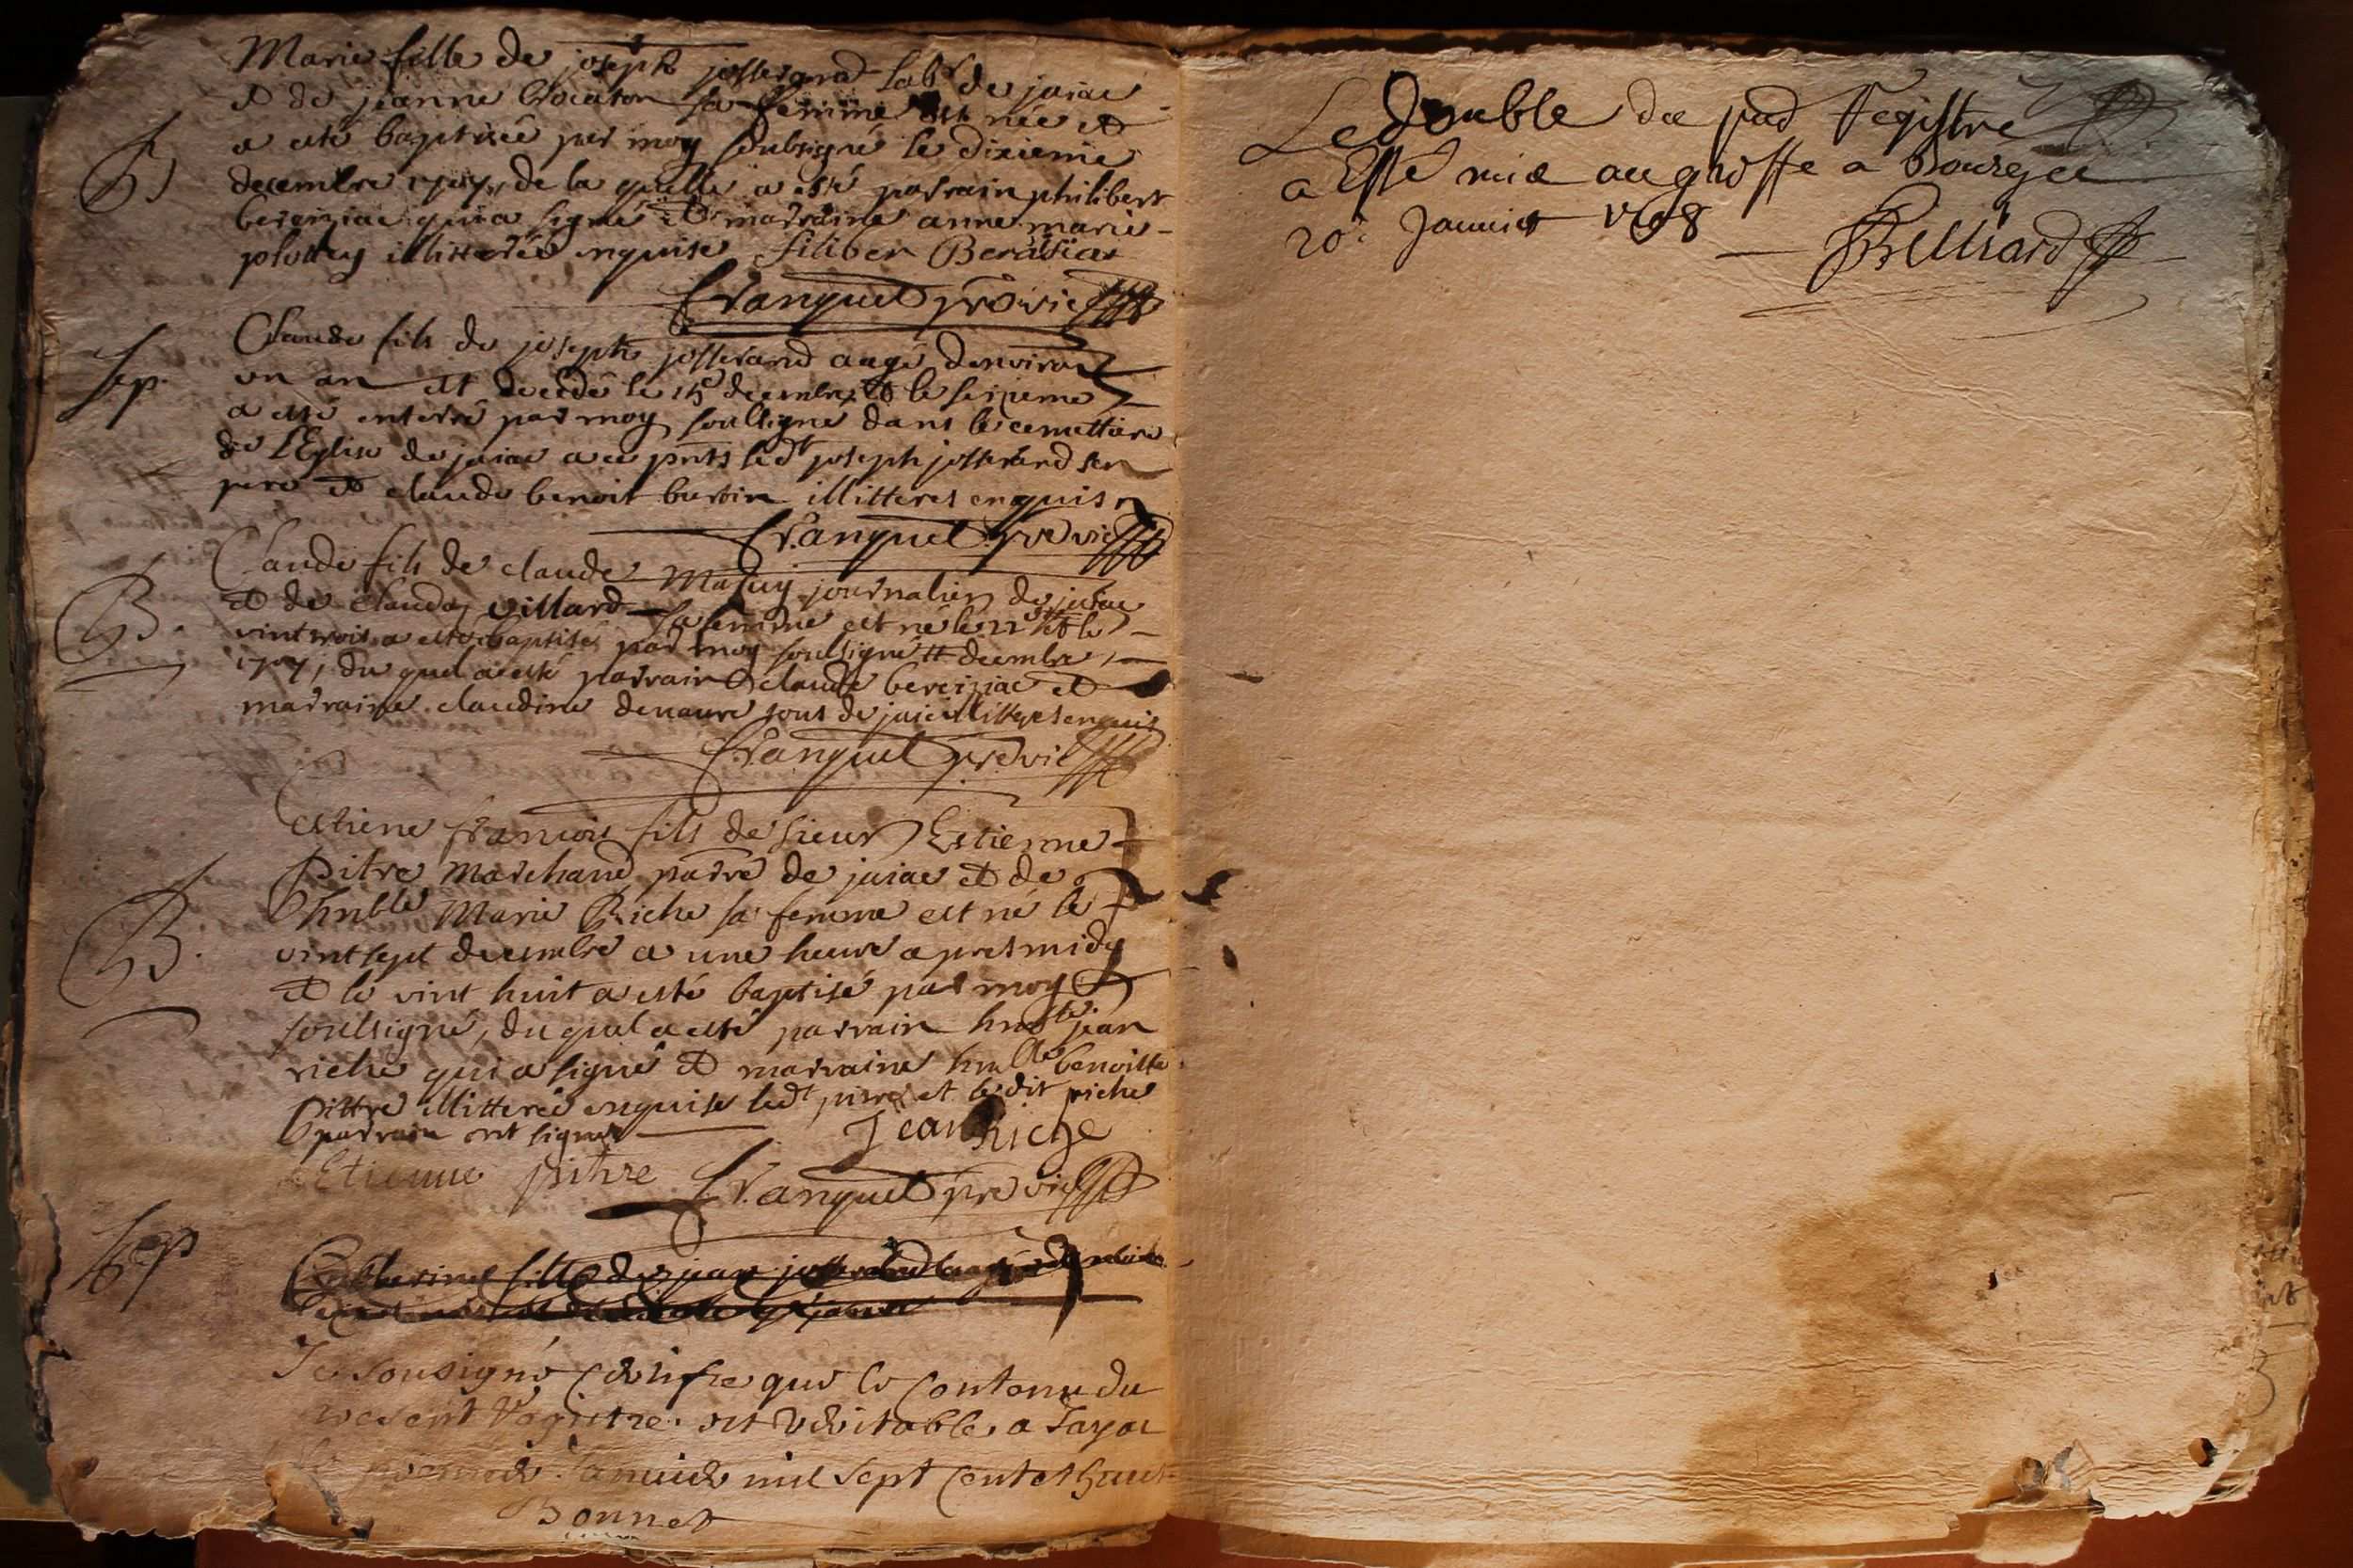 Marie fille de joseph josserand lab^r de jaiac
et de jeanne sa femme est née et
B a esté baptisée par moy soubsigné le dixieme
decembre 1707, de la quelle a esté parrain philibert
bereiziac qui a signé et marraine anne marie
illitterée enquise filiber Berasiat
Vanquel pre vic
Sep. Claude fils de joseph josserand aagé denviron
un an est decedé le 15^e decembre et le seizieme
a esté enterré par moy soulsigné dans le cemettiere
de l'Eglise de jaiac a ce pnts led^t joseph josserand son
pere et claude benoit burtin illitteres enquis
Vanquel pre vic
Claude fils de claude Matuy journalier de jaiac
B. et de Clauda villard sa femme est né le 22^e et le
vint trois a esté baptisé par moy soulsigné decembre
1707, du quel a esté parrain claude bereiziac et
marraine claudine denaure tous de jaiac illitteres enquis
Vanquel pre vic
Estiene francois fils de sieur Estienne
Pitre Marchand parre de jaiac et de
B. hnble Marie Riche sa femme est né le
vint sept decembre a une heure apres midy
et le vint huit a esté baptisé par moy
soulsigné, du quel a esté parrain hno^ble jean
riche qui a signé et marraine hn^ble benoitte
Pittre illitterée enquise led^t pitre et ledit riche
parrain ont signé
Jean Riche
Etienne pitre Vanquel pre vic
Sep Catherine fille de jean josserand
Je sousigné certifie que le contenu du
present Registre est veritable a Jayac
le premier Januier mil sept cent et huict
Bonnet
Le double du pnd Registre
a Esté mis au greffe a Bourg ce
20^e Januier 1708
Belliard